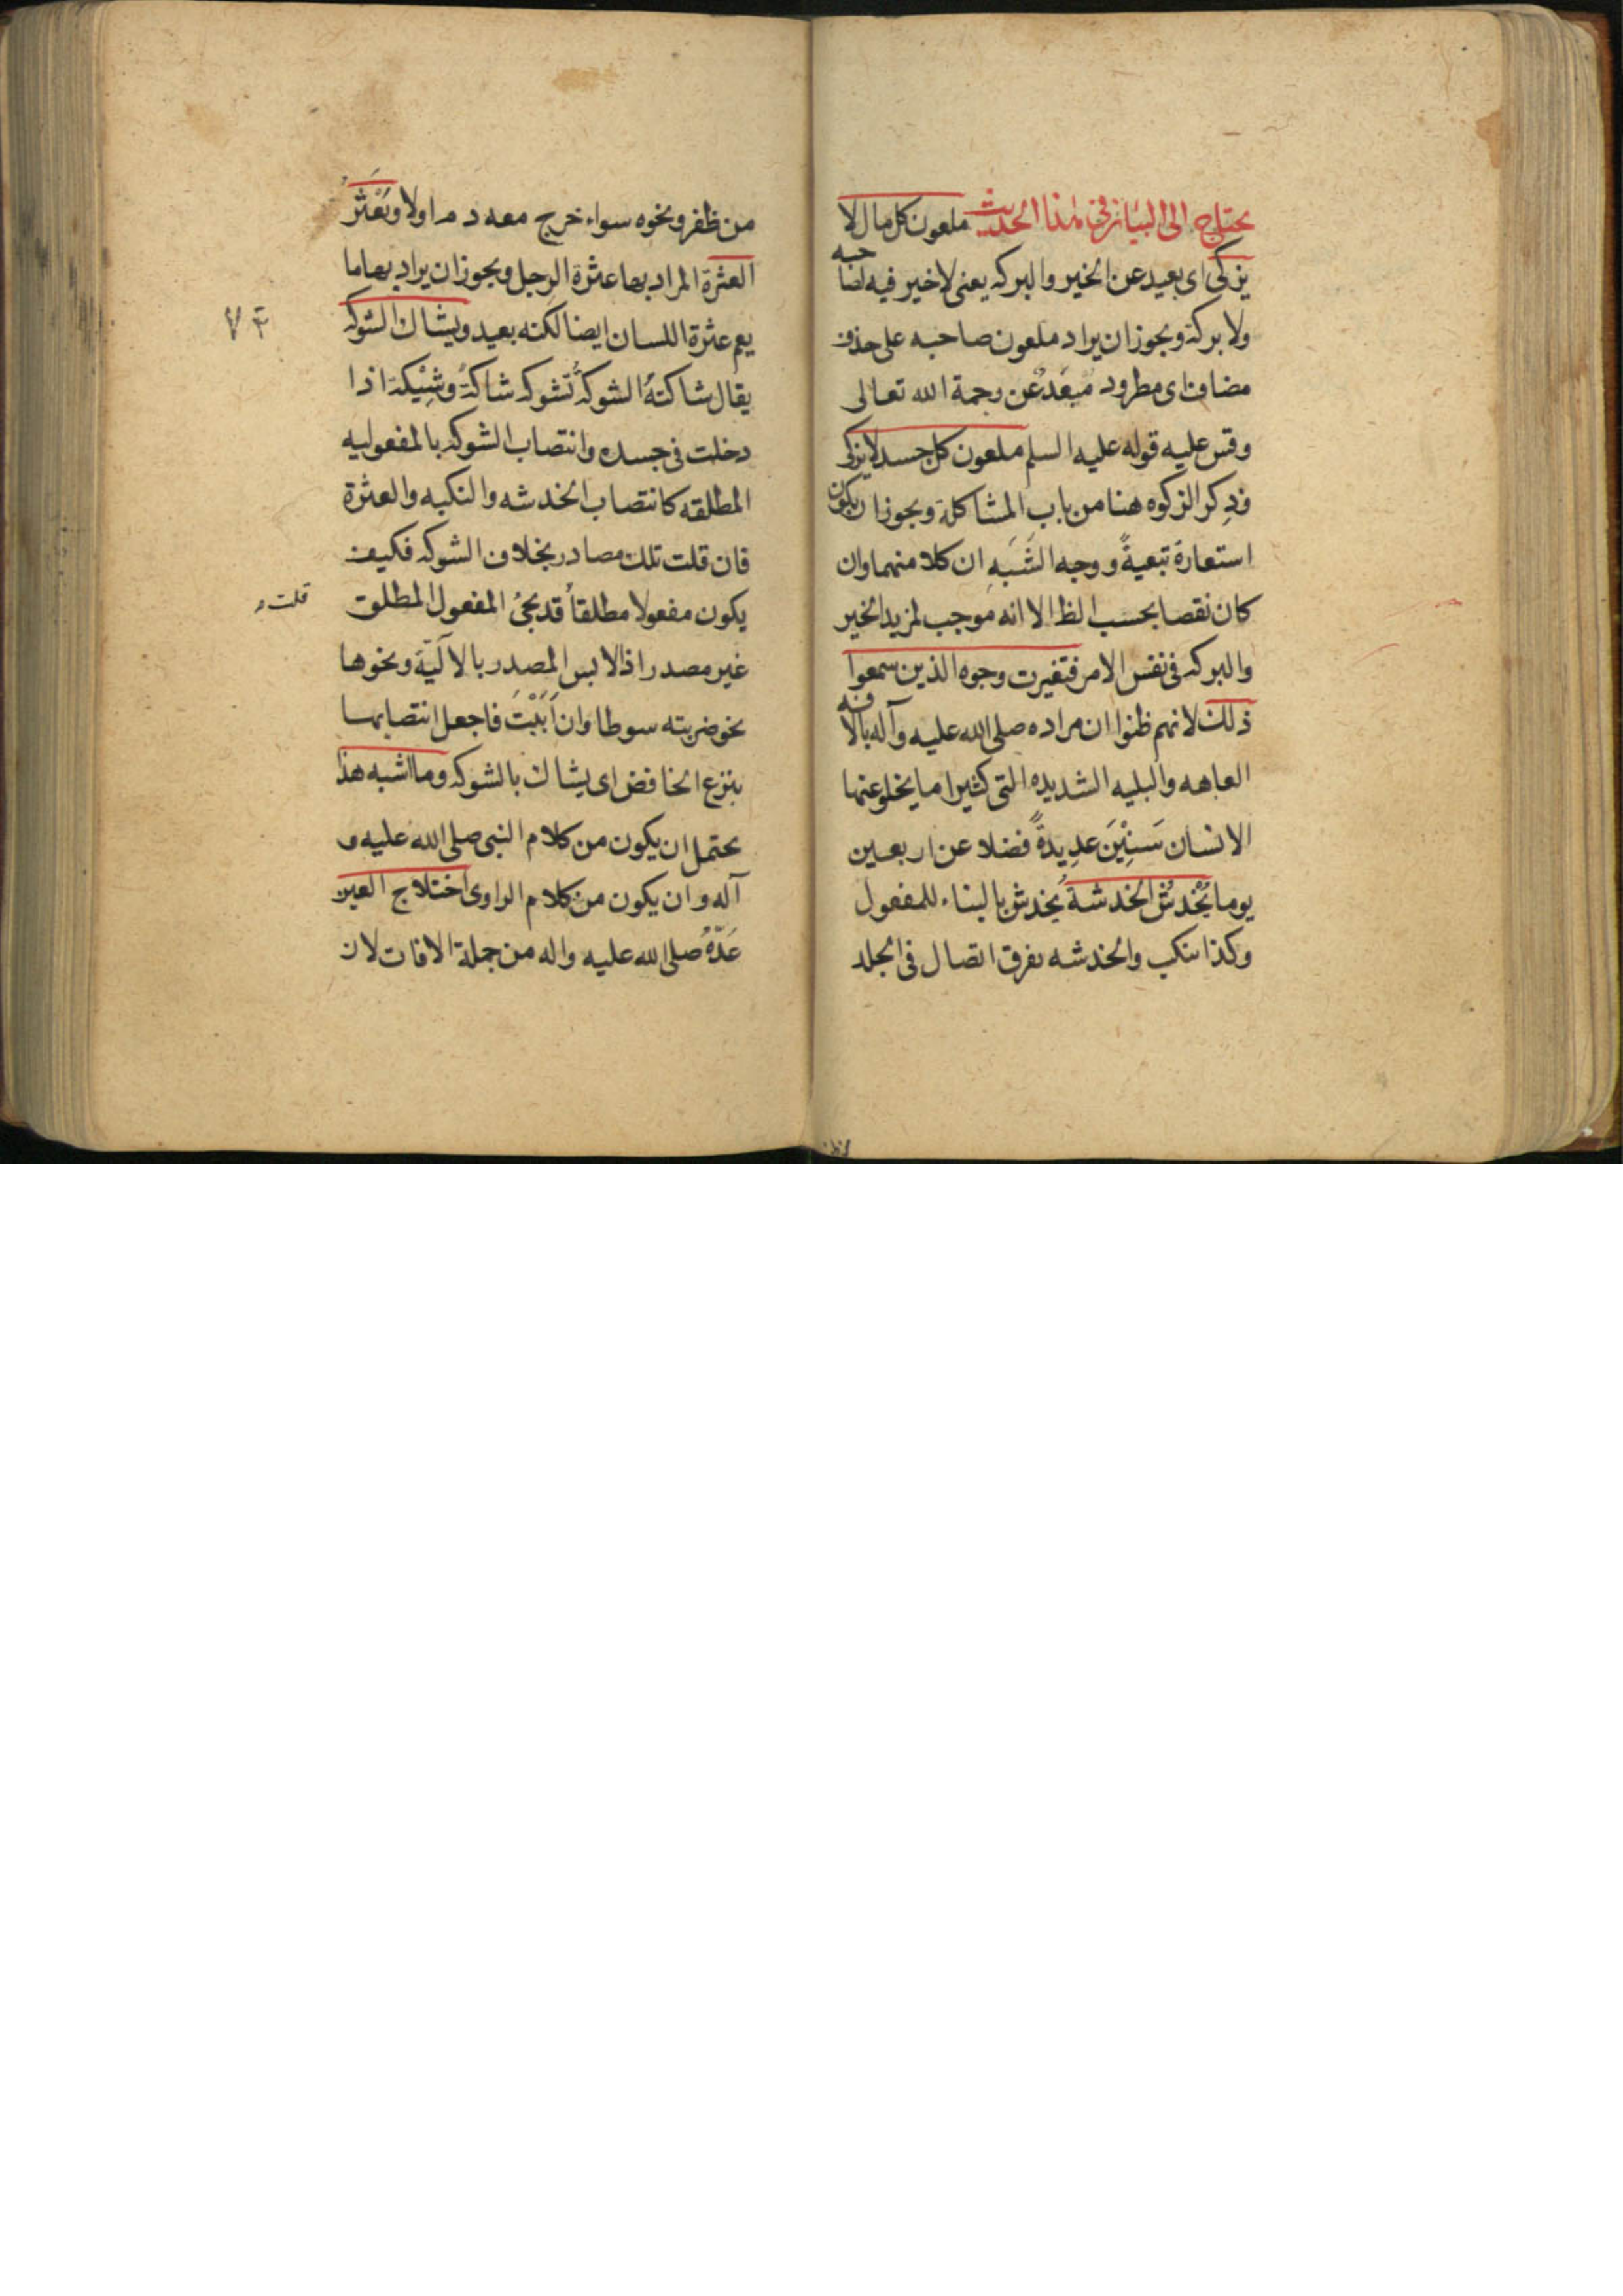 يحتاج الى البيان في هذا الحديث ملعون كل مال لا
يزكى اى بعيد عن الخير والبركه يعنى لا خير فيه لصاحبه
ولا بركة ويجوز ان يراد ملعون صاحبه على حذف
مضاف اى مطرود مبعَدٌ عن رحمة الله تعالى
وقس عليه قوله عليه السلم ملعون كل جسد لا يزكى
وذِكر الزكوه هنا من باب المشاكلة ويجوز ان يكون
استعارة تبعيةً ووجه الشَبَهِ ان كلا منهما وان
كان نقصا بحسب الظ الا انه موجب لمزيد الخير
والبركه فى نفس الامر فتغيرت وجوه الذين سمعوا
ذلك لانهم ظنوا ان مراده صلى الله عليه وآله بالافه
العاهه والبليه الشديده التى كثيرا ما يخلو عنها
الانسان سَنِيْنَ عدِيدةً فضلا عن اربعين
يوما يُخْدشُ الخدشةُ يخدش بالبناء للمفعول
وكذا ينكب والخدشه تفرق اتصال فى الجلد
من ظفر ونحوه سواء خرج معه دم اولا ويَعْثَرُ
العثرة المراد بها عثرة الرجل ويجوز ان يراد بها ما
يعم عثرة اللسان ايضا لكنه بعيد ويشاك الشوكه
٧۴
يقال شاكتهُ الشوكةُ تشوكه شاكةً وشِيْكة اذا
دخلت فى جسده وانتصاب الشوكه بالمفعوليه
المطلقه كانتصاب الخدشه والنكبه والعثرة
فان قلت تلك مصادر بخلاف الشوكه فكيف
يكون مفعولا مطلقاً قد يجئ المفعول المطلق
قلت
غير مصدر اذا لابس المصدر بالآليّة ونحوها
نحو ضربته سوطا وان اَبَيْتَ فاجعل انتصابها
بنزع الخافض اى يشاك بالشوكه وما اشبه هذا
يحتمل ان يكون من كلام النبى صلى الله عليه و
آله وان يكون من كلام الراوى اختلاج العين
عَدّهُ صلى الله عليه واله من جملة الافات لان